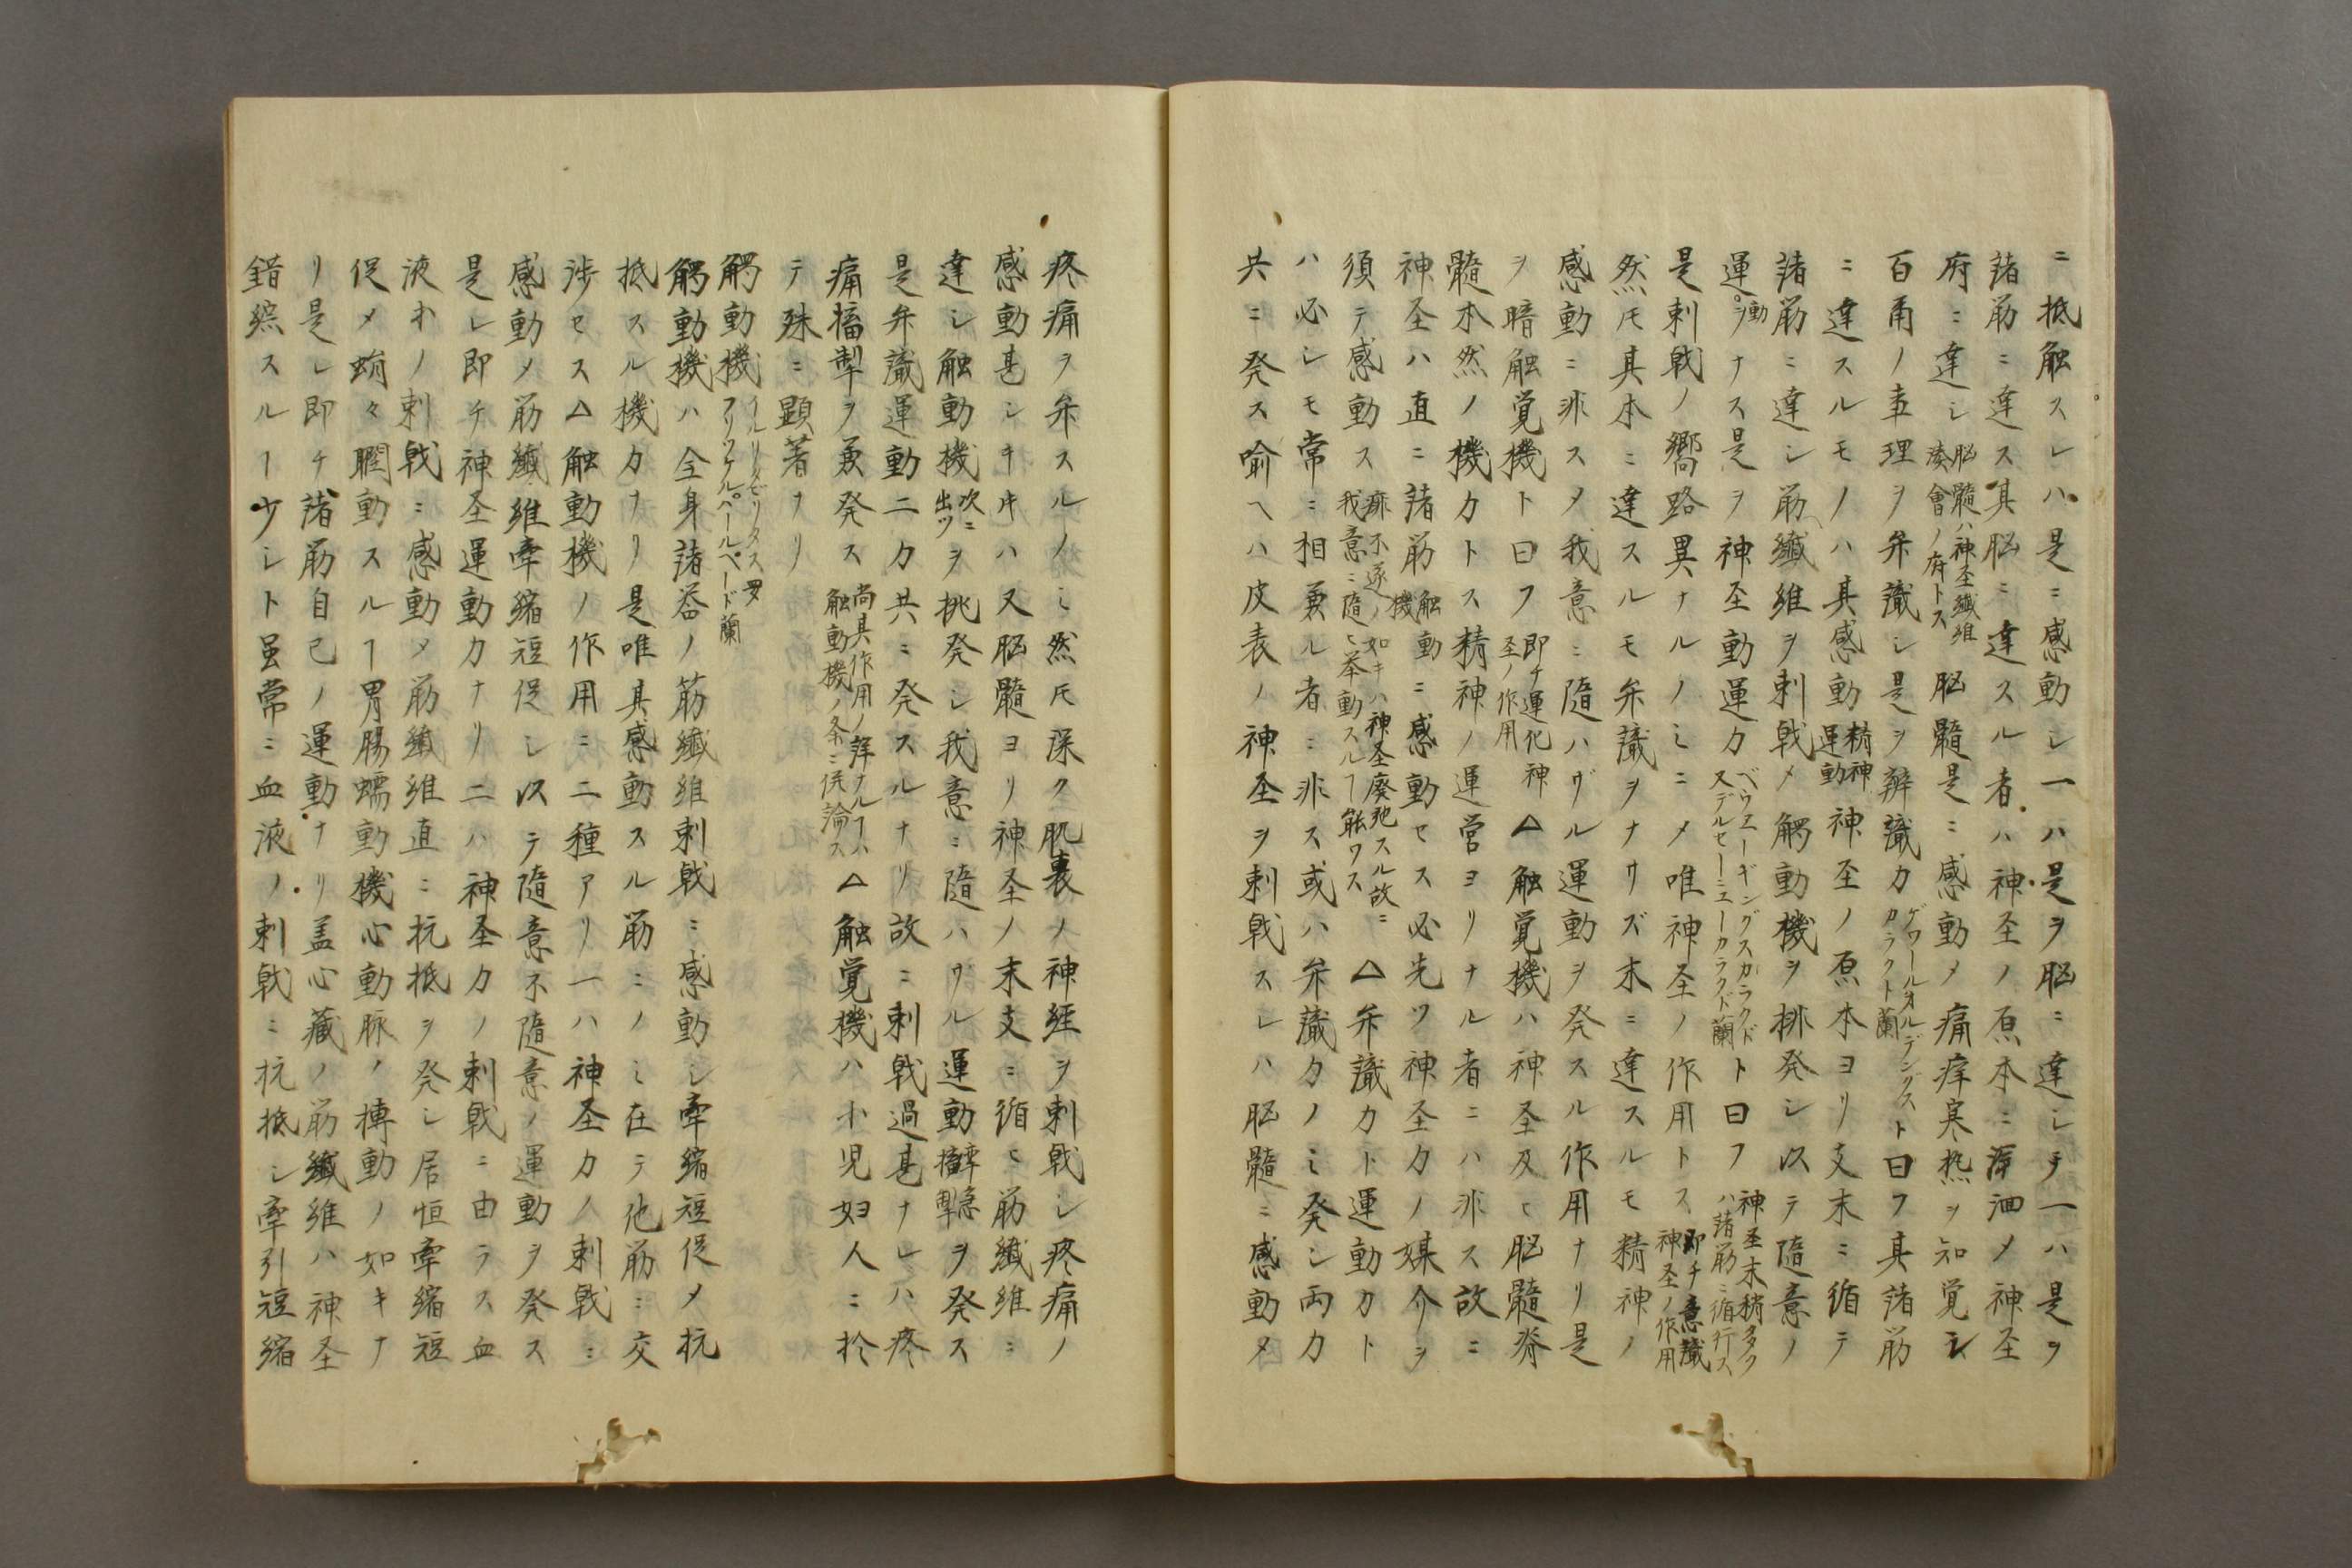 ニ抵触スレハ是ニ感動シ一ハ是ヲ脳ニ達シテ一ハ是ヲ
諸筋ニ達ス其脳ニ達スル者ハ神圣ノ原本ニ淳洄メ神圣
府ニ達シ脳髄ハ神圣纎維湊會ノ府トス脳髄是ニ感動メ痛痒寒热ヲ知覚シ
百甬ノ事理ヲ弁識シ是ヲ辨識力ゲワールオルデングスカラクト蘭ト曰フ其諸筋
ニ達スルモノハ其感動精神運動神圣ノ原本ヨリ支末ニ循テ
諸筋ニ達シ筋纎維ヲ刺戟メ觸動機ヲ排発シ以テ隨意ノ
運動ヲナス是ヲ神圣動運力ベウエーギングスカラクドスデルセーニューカラクド蘭ト曰フ神圣末稍多クハ諸筋ニ循行ス
是刺戟ノ嚮路異ナルノミニメ唯神圣ノ作用トス即チ意識神圣ノ作用
然𪜈其本ニ達スルモ弁識ヲナサズ末ニ達スルモ精神ノ
感動ニ非スメ我意ニ隨ハザル運動ヲ発スル作用ナリ是
ヲ暗触覚機ト曰フ即チ運化神圣ノ作用△触覚機ハ神圣及ヒ脳髄脊
髄本然ノ機力トス精神ノ運営ヨリナル者ニハ非ス故ニ
神圣ハ直ニ諸筋触動機ニ感動セス必先ツ神圣力ノ媒介ヲ
須テ感動ス痲不遂ノ如キハ神圣廢弛スル故ニ我意ニ隨ヒ挙動スルヿ能ワス△弁識力ト運動力ト
ハ必シモ常ニ相兼ル者ニ非ス或ハ弁識力ノミ発シ両力
共ニ発ス喻ヘハ皮表ノ神圣ヲ刺戟スレハ脳髄ニ感動メ
疼痛ヲ弁スルノミ然𪜈深ク肌裏ノ神経ヲ刺戟シ疼痛ノ
感動甚シキ𪜈ハ又脳髄ヨリ神圣ノ末支ニ循ヒ筋纎維ニ
達シ触動機次ニ出ツヲ挑発シ我意ニ隨ハサル運動攣急搐掣ヲ発ス
是弁識運動二力共ニ発スルナリ故ニ刺戟過甚ナレハ疼
痛搐掣ヲ兼発ス尚其作用ノ詳ナルヿハ触動機ノ条ニ併論ス△触覚機ハ小児妇人ニ於
テ殊ニ顕著ナリ
觸動機イルリタビリタス羅プリッケルベールヘード蘭
觸動機ハ全身諸器ノ筋纎維刺戟ニ感動シ牽縮短促メ抗
抵スル機力ナリ是唯其感動スル筋ニノミ在テ他筋ニ交
渉セス△触動機ノ作用ニ二種アリ一ハ神圣力ノ刺戟ニ
感動メ筋纎維牽縮短促シ以テ隨意不隨意ノ運動ヲ発ス
是レ即チ神圣運動力ナリ二ハ神圣力ノ刺戟ニ由ラス血
液オノ刺戟ニ感動メ筋纎維直ニ抗抵ヲ発シ居恒牽縮短
促メ蝡々䐃動スルヿ胃腸蠕動機心動脉ノ搏動ノ如キナ
リ是レ即チ諸筋自己ノ運動ナリ盖心藏ノ筋纎維ハ神圣
錯綜スルヿ少シト虽常ニ血液ノ刺戟ニ抗抵シ牽引短縮